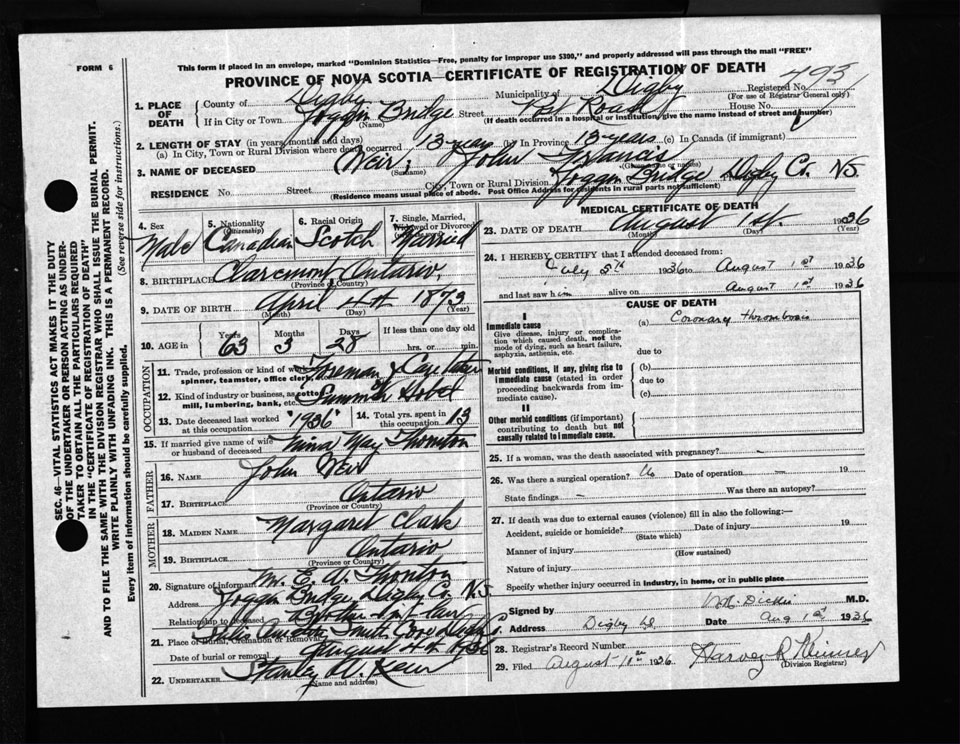 FORM 6
This form if placed in an envelope, marked "Dominion Statistics—Free, penalty for improper use $300," and properly addressed will pass through the mail "FREE"
PROVINCE OF NOVA SCOTIA—CERTIFICATE OF REGISTRATION OF DEATH
Registered No. 493
(For use of Registrar General only)
1. PLACE OF DEATH
County of Digby Municipality of Digby
If in City or Town Joggin Bridge Street Post Road House No.
(Name) (If death occurred in a hospital or institution, give the name instead of street and number)
2. LENGTH OF STAY (in years, months and days)
(a) In City, Town or Rural Division where death occurred 13 years (b) In Province 13 years (c) In Canada (if immigrant)
3. NAME OF DECEASED Weir, John Francis
(Surname) (Given name or names)
RESIDENCE No. Street City, Town or Rural Division Joggin Bridge Digby Co. N.S.
(Residence means usual place of abode. Post Office Address for residents in rural parts not sufficient)
4. Sex Male
5. Nationality (Citizenship) Canadian
6. Racial Origin Scotch
7. Single, Married, Widowed or Divorced Married
8. BIRTHPLACE Claremont Ontario,
(Province or Country)
9. DATE OF BIRTH April 4th 1873
(Month) (Day) (Year)
10. AGE in Years 63 Months 3 Days 28 If less than one day old hrs. or min.
OCCUPATION
11. Trade, profession or kind of work as spinner, teamster, office clerk, Foreman & Care taker
12. Kind of industry or business, as cotton mill, lumbering, bank, etc. Summer Hotel
13. Date deceased last worked at this occupation. "1936"
14. Total yrs. spent in this occupation 13
15. If married give name of wife or husband of deceased Nina May Thornton
FATHER
16. NAME John Weir
17. BIRTHPLACE Ontario
(Province or Country)
MOTHER
18. MAIDEN NAME Margaret Clark
19. BIRTHPLACE Ontario
(Province or Country)
20. Signature of informant Mr. E. Thornton
Address Joggin Bridge, Digby Co. N.S.
Relationship to deceased Brother-in-law
21. Place of Burial, Cremation or Removal Smith Cove Digby Co.
Date of burial or removal August 4th 1936
22. UNDERTAKER Stanley W.
(Name and address)
MEDICAL CERTIFICATE OF DEATH
23. DATE OF DEATH August 1st. 1936
(Month) (Day) (Year)
24. I HEREBY CERTIFY that I attended deceased from:
July 5th 1936 to August 1st 1936
and last saw him alive on August 1st 1936
CAUSE OF DEATH
I
Immediate cause
Give disease, injury or complication which caused death, not the mode of dying, such as heart failure, asphyxia, asthenia, etc.
(a) Coronary Thrombosis
due to
Morbid conditions, if any, giving rise to immediate cause (stated in order proceeding backwards from immediate cause).
(b)
due to
(c)
II
Other morbid conditions (if important) contributing to death but not causally related to immediate cause.
25. If a woman, was the death associated with pregnancy? -
26. Was there a surgical operation? Date of operation — 19
State findings - Was there an autopsy?
27. If death was due to external causes (violence) fill in also the following:—
Accident, suicide or homicide? Date of injury 19
(State which)
Manner of injury
(How sustained)
Nature of injury
Specify whether injury occurred in industry, in home, or in public place
Signed by Dickie M.D.
Address Digby Date Aug 1st 1936
28. Registrar's Record Number
29. Filed August 11th 1936 Harvey R
(Division Registrar)
SEC. 46—VITAL STATISTICS ACT MAKES IT THE DUTY OF THE UNDERTAKER OR PERSON ACTING AS UNDERTAKER TO OBTAIN ALL THE PARTICULARS REQUIRED IN THE "CERTIFICATE OF REGISTRATION OF DEATH" AND TO FILE THE SAME WITH THE DIVISION REGISTRAR WHO SHALL ISSUE THE BURIAL PERMIT.
WRITE PLAINLY WITH UNFADING INK. THIS IS A PERMANENT RECORD.
Every item of information should be carefully supplied. (See reverse side for instructions.)